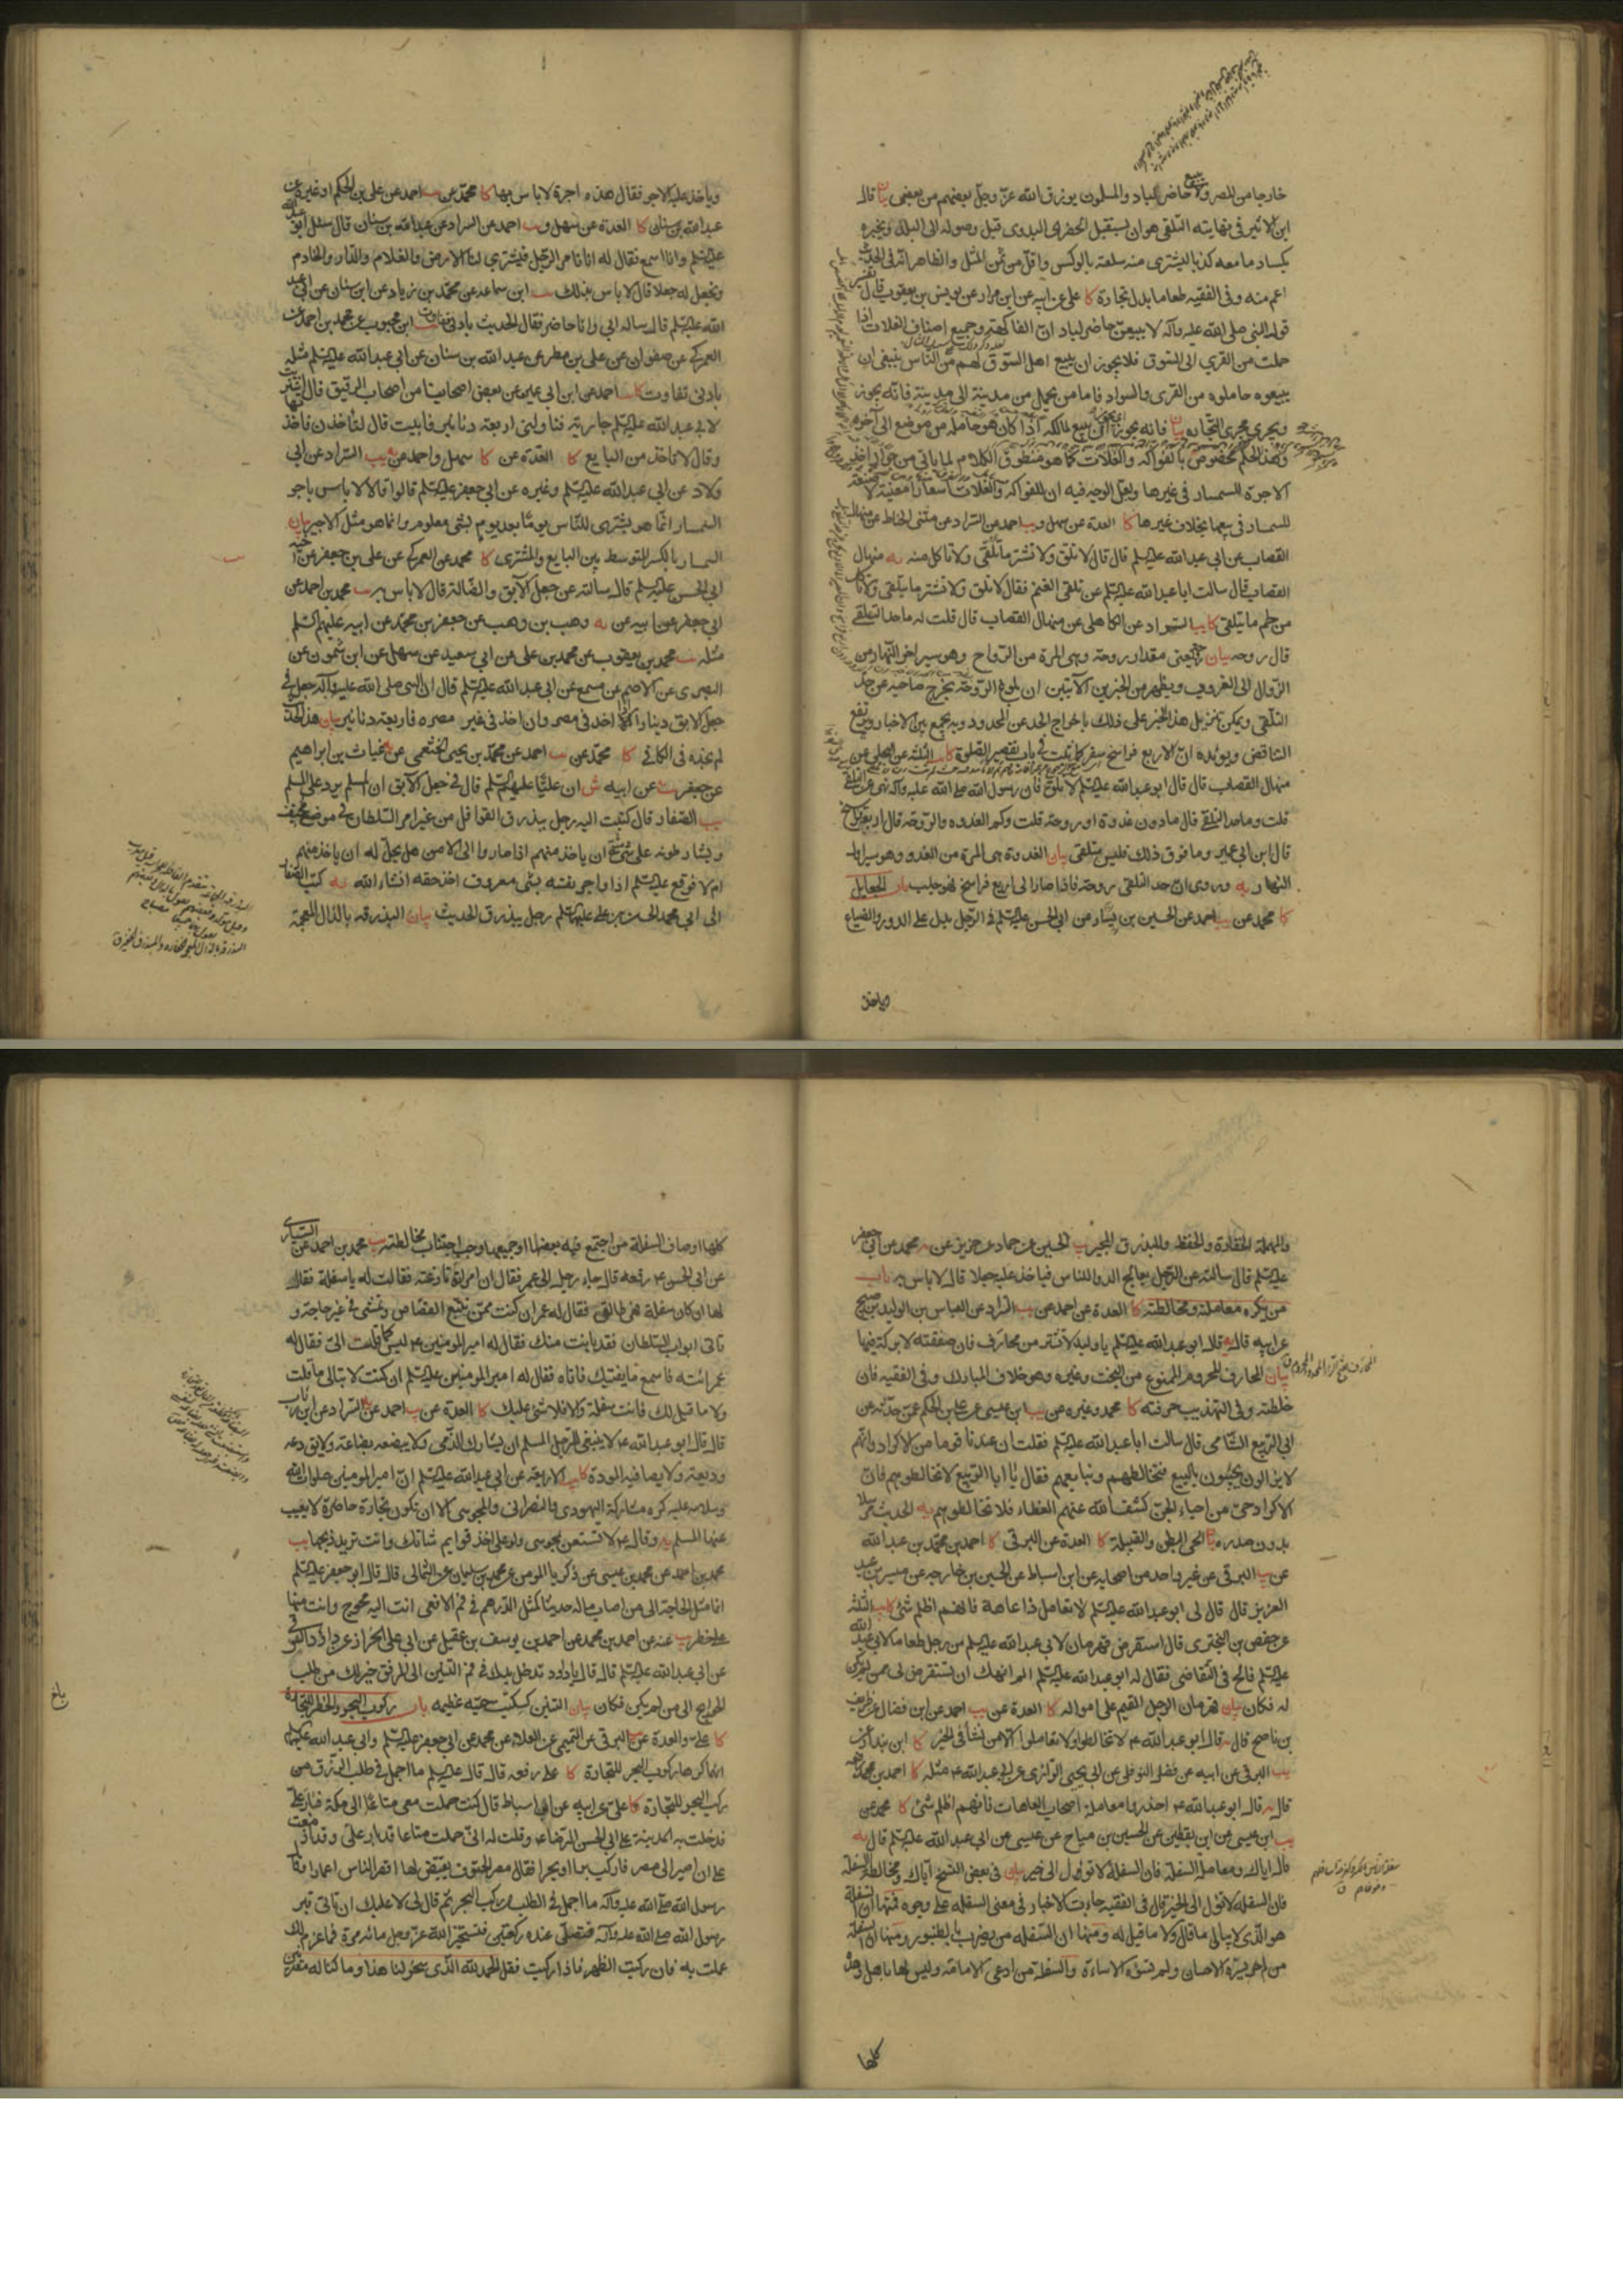 خارجا من المصر ولا يبيع حاضر لباد والمسلمون يرزق الله عز وجل بعضهم من بعض بيان قال
ابن الاثير في نهايته التلقي هو ان يستقبل الحضري البدوي قبل وصوله الى البلد ويخبره
بكساد ما معه كذبا ليشتري منه سلعته بالوكس واقل من ثمن المثل والظاهر انه في الحديث
اعم منه وفي الفقيه طعاما بدل تجارة كا علي عن ابيه عن ابن مرار عن يونس بن يعقوب قال تفسير
قول النبي صلى الله عليه وآله لا يبيعن حاضر لباد ان الفاكهة وجميع اصناف الغلات اذا
حملت من القرى الى السوق فلا يجوز ان يبيع اهل السوق لهم من الناس ينبغي ان
يبيعوه حاملوه من القرى والسواد فاما من يحمل من مدينة الى مدينة فانه يجوز
ويجري مجرى التجارة بيان فانه يجوز اي يجوز ان يبيع لمالكه اذا كان هو حامله من موضع الى آخر
وهذا الحكم مخصوص بالفواكه والغلات كما هو منطوق الكلام لما ياتي من جواز اخذ
الاجرة للسمسار في غيرها ولعل الوجه فيه ان للفواكه والغلات اسعارا معينة لا صنعة
للسمسار في بيعها بخلاف غيرها كا العدة عن سهل ويب احمد عن السراد عن مثنى الحناط عن منهال
القصاب عن ابي عبد الله عليه السلم قال قال لا تلق ولا تشتر ما تلقي ولا تاكل منه يه منهال
القصاب قال سالت ابا عبد الله عليه السلم عن تلقي الغنم فقال لا تلق ولا تشتر ما يتلقى ولا تاكل
من لحم ما يتلقى كا يب السراد عن الكاهلي عن منهال القصاب قال قلت له ما حد التلقي
قال روحه بيان يعني مقدار روحة وهي المرة من الرواح وهو سير اخر النهار من
الزوال الى الغروب ويظهر من الخبرين الآتيين ان بلوغ الروحة يخرج صاحبه عن حد
التلقي ويمكن تنزيل هذا الخبر على ذلك باخراج الحد عن المحدود وبه يجمع بين الاخبار ويرتفع
التناقض ويؤيده ان الاربع فراسخ سفر كما ثبت في باب تقصير الصلوة كا يب الثلثة عن البجلي عن
منهال القصاب قال قال ابو عبد الله عليه السلم لا تلق فان رسول الله صلى الله عليه وآله نهى عن التلقي
قلت وما حد التلقي قال ما دون غدوة او روحة قلت وكم الغدوة والروحة قال اربع فراسخ
قال ابن ابي عمير وما فوق ذلك فليس بتلقي بيان الغدوة هي المرة من الغدو وهو سير اول
النهار يه وروي ان حد التلقي روحة فاذا صار الى اربع فراسخ فهو جلب باب الجعايل
كا محمد عن يب احمد عن الحسين بن يسار عن ابي الحسن عليه السلم في الرجل يدل على الدور والضياع
وياخذ
وياخذ عليه الاجر فقال هذه اجرة لا باس بها كا محمد عن يب احمد عن علي بن الحكم او غيره عن
عبد الله بن سنان كا العدة عن سهل ويب احمد عن السراد عن عبد الله بن سنان قال سئل ابو عبد الله
عليه السلم وانا اسمع فقال له انا نامر الرجل فيشتري لنا الارض والغلام والدار والخادم
ونجعل له جعلا قال لا باس بذلك يب ابن سماعة عن محمد بن زياد عن ابن سنان عن ابي عبد
الله عليه السلم قال ساله ابي وانا حاضر فقال الحديث بادنى تفاوت يب ابن محبوب عن محمد بن احمد عن
العمركي عن صفوان عن علي بن مطر عن عبد الله بن سنان عن ابي عبد الله عليه السلم مثله
بادنى تفاوت كا يب احمد عن ابن ابي عمير عن بعض اصحابنا من اصحاب الرقيق قال اشتريت
لابي عبد الله عليه السلم جارية فناولني اربعة دنانير فابيت قال لتاخذن فاخذتها
وقال لا تاخذ من البايع كا العدة عن كا سهل واحمد عن يب السراد عن ابي
ولاد عن ابي عبد الله عليه السلم وغيره عن ابي جعفر عليه السلم قالوا قالا لا باس باجر
السمسار انما هو يشتري للناس يوما بعد يوم بشئ معلوم وانما هو مثل الاجير بيان
السمسار بالكسر المتوسط بين البايع والمشتري كا محمد عن العمركي عن علي بن جعفر عن اخيه
ابي الحسن عليه السلم قال سالته عن جعل الآبق والضالة قال لا باس به يب محمد بن احمد عن
ابي جعفر عن ابيه عن يه وهب بن وهب عن جعفر بن محمد عن ابيه عليهم السلم
مثله يب محمد بن يعقوب عن محمد بن علي عن ابي سعيد عن سهل عن ابن شمون عن
البصري عن الاصم عن مسمع عن ابي عبد الله عليه السلم قال ان النبي صلى الله عليه وآله جعل في
جعل الابق دينارا اذا اخذ في مصره وان اخذ في غير مصره فاربعة دنانير بيان هذا الحديث
لم نجده في الكافي كا محمد عن يب احمد عن محمد بن يحيى الخثعمي عن غياث بن ابراهيم
عن جعفر عن ابيه ش ان عليا عليهم السلم قال في جعل الآبق ان المسلم يرد على المسلم
يب الصفار قال كتبت اليه رجل يبذرق القوافل من غير امر السلطان في موضع مخيف
ويشارطونه على شئ مسمى ان ياخذ منهم اذا صاروا الى الامن هل يحل له ان ياخذ منهم
ام لا فوقع عليه السلم اذا واجر نفسه بشئ معروف اخذ حقه انشاء الله يه كتب الصفار
الى ابي محمد الحسن بن علي عليهما السلم رجل يبذرق الحديث بيان البذرقة بالذال المعجمة
والمهملة الخفارة والحفظ والمبذرق المجير يب الحسين عن حماد عن حريز عن محمد عن ابي جعفر
عليه السلم قال سالته عن الرجل يعالج الدواء للناس فياخذ عليه جعلا قال لا باس به باب
من يكره معاملته ومخالطته كا العدة عن احمد عن يب السراد عن العباس بن الوليد بن صبيح
عن ابيه قال يه قال ابو عبد الله عليه السلم يا وليد لا تشتر من محارف فان صفقته لا بركة فيها
بيان المحارف المحروم الممنوع من البخت وغيره وهو خلاف المبارك وفي الفقيه فان
خلطته وفي التهذيب حرفته كا محمد وغيره عن يب ابن عيسى عن علي بن الحكم عمن حدثه عن
ابي الربيع الشامي قال سالت ابا عبد الله عليه السلم فقلت ان عندنا قوما من الاكراد وانهم
لا يزالون يجيئون بالبيع فنخالطهم ونبايعهم فقال يا ابا الربيع لا تخالطوهم فان
الاكراد حي من احياء الجن كشف الله عنهم الغطاء فلا تخالطوهم يه الحديث مرسلا
بدون صدره بيان الحي البطن والقبيلة كا العدة عن البرقي كا احمد بن محمد بن عبد الله
عن يب البرقي عن غير واحد من اصحابه عن ابن اسباط عن الحسين بن خارجة عن ميسر بن عبد
العزيز قال قال لي ابو عبد الله عليه السلم لا تعامل ذا عاهة فانهم اظلم شئ كا يب الثلثة
عن حفص بن البختري قال استقرض قهرمان لابي عبد الله عليه السلم من رجل طعاما لابي عبد الله
عليه السلم فالح في التقاضي فقال له ابو عبد الله عليه السلم الم انهك ان تستقرض لي ممن لم يكن
له فكان بيان قهرمان الرجل القيم على امواله كا العدة عن يب احمد عن ابن فضال عن ظريف
بن ناصح قال قال ابو عبد الله ع لا تخالطوا ولا تعاملوا الا من نشأ في الخير كا ابن بندار عن
يب البرقي عن ابيه عن فضل النوفلي عن ابي يحيى الرازي عن ابي عبد الله ع مثله كا احمد بن محمد رفعه
قال قال ابو عبد الله ع احذروا معاملة اصحاب العاهات فانهم اظلم شئ كا محمد عن
يب ابن عيسى عن ابن يقطين عن الحسين بن مياح عن عيسى عن ابي عبد الله عليه السلم قال يه
قال اياك ومعاملة السفلة فان السفلة لا تؤول الى خير بيان في بعض النسخ اياك ومخالطة السفلة
فان السفلة لا تؤول الى الخير قال في الفقيه جاءت الاخبار في معنى السفلة على وجوه فمنها ان السفلة
هو الذي لا يبالي ما قال ولا ما قيل له ومنها ان السفلة من يضرب بالطنبور ومنها ان السفلة
من لم يسره الاحسان ولم تسؤه الاساءة والسفلة من ادعى الامامة وليس لها باهل وهذه
كلها
كلها اوصاف السفلة من اجتمع فيه بعضها او جميعها وجب اجتناب مخالطته يب محمد بن احمد عن السياري
عن ابي الحسن ع رفعه قال جاء رجل الى عمر فقال ان امراته نازعته فقالت له يا سفلة فقال
لها ان كان سفلة فهي طالق فقال له عمر ان كنت ممن تتبع القصاص وتمشي في غير حاجة و
تاتي ابواب السلطان فقد بانت منك فقال له امير المومنين ع ليس كما قلت الي فقال له
عمر ائته فاسمع ما يفتيك فاتاه فقال له امير المومنين عليه السلم ان كنت لا تبالي ما قلت
ولا ما قيل لك فانت سفلة والا فلا شئ عليك كا العدة عن يب احمد عن السراد عن ابن رئاب
قال قال ابو عبد الله ع لا ينبغي للرجل المسلم ان يشارك الذمي ولا يبضعه بضاعة ولا يودعه
وديعة ولا يصافيه المودة كا يب الاربعة عن ابي عبد الله عليه السلم ان امير المومنين صلوات الله
وسلامه عليه كره مشاركة اليهودي والنصراني والمجوسي الا ان تكون تجارة حاضرة لا يغيب
عنها المسلم يه وقال ع لا تستعن بمجوسي ولو على اخذ قوايم شاتك وانت تريد ذبحها يب
محمد بن احمد عن محمد بن عيسى عن زكريا المومن عن محمد بن سليمان عن الثمالي قال قال ابو جعفر عليه السلم
انما مثل الحاجة الى من اصاب ماله حديثا كمثل الدرهم في فم الافعى انت اليه محوج وانت منها
على خطر يب عنه عن احمد بن محمد عن احمد بن يوسف بن عقيل عن ابي علي الخراز عن داود الرقي
عن ابي عبد الله عليه السلم قال قال يا داود تدخل يدك في فم التنين الى المرفق خير لك من طلب
الحوايج الى من لم يكن فكان بيان التنين كسكيت حية عظيمة باب ركوب البحر والخطر للتجارة
كا علي والعدة عن البرقي عن التميمي عن العلاء عن محمد عن ابي جعفر عليه السلم وابي عبد الله عليه السلم
انهما كرها ركوب البحر للتجارة كا علي رفعه قال قال عليه السلم ما اجمل في طلب الرزق من
ركب البحر للتجارة كا علي عن ابيه عن ابن اسباط قال كنت حملت معي متاعا الى مكة فبار علي
فدخلت به المدينة على ابي الحسن الرضا ع وقلت له اني حملت متاعا قد بار علي وقد عزمت
على ان اصير الى مصر فاركب برا او بحرا فقال مصر الحتوف يقيض لها اقصر الناس اعمارا وقال
رسول الله صلى الله عليه وآله ما اجمل في الطلب من ركب البحر ثم قال لي لا عليك ان تاتي قبر
رسول الله صلى الله عليه وآله فتصلي عنده ركعتين فتستخير الله عز وجل مائة مرة فما عزم لك
عملت به فان ركبت الظهر فاذا ركبت فقل الحمد لله الذي سخر لنا هذا وما كنا له مقرنين